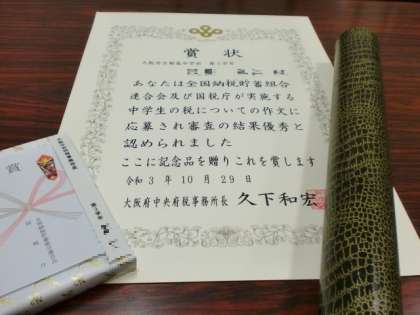 賞状
あなたは全国納税貯蓄組合
連合会及び国税庁が実施する
中学生の税についての作文に
応募され審査の結果優秀と
認められました
ここに記念品を贈りこれを賞します
令和3年10月29日
大阪府中央府税事務所長 久下和宏
賞